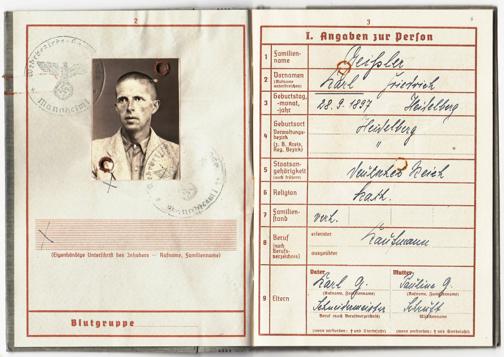 2
Mannheim 1
(Eigenhändige Unterschrift des Inhabers — Rufname, Familienname)
Blutgruppe
3
I. Angaben zur Person
1 Familien-
name
2 Vornamen
(Rufname
unterstreichen)
Karl Friedrich
3 Geburtstag,
-monat,
-jahr
28.9.1897 Heidelberg
4 Geburtsort
Verwaltungs-
bezirk
(z. B. Kreis,
Reg. Bezirk)
Heidelberg
"
5 Staatsan-
gehörigkeit
(auch frühere)
Deutsches Reich
6 Religion
kath.
7 Familien-
stand
verh.
8 Beruf
(nach
Berufs-
verzeichnis)
erlernter
Kaufmann
ausgeübter
9 Eltern
Vater Mutter
Karl G. Pauline G.
(Rufname, Familienname) (Rufname, Familienname)
Schneidermeister
Beruf (nach Berufsverzeichnis) Mädchenname
(wenn verstorben: † und Sterbejahr) (wenn verstorben: † und Sterbejahr)